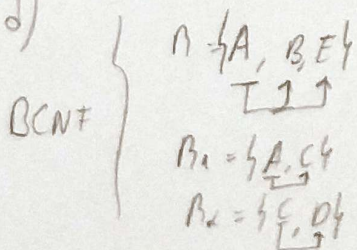 d)
BCNF
R = {A, B, E}
R₁ = {A, C}
R₂ = {C, D}